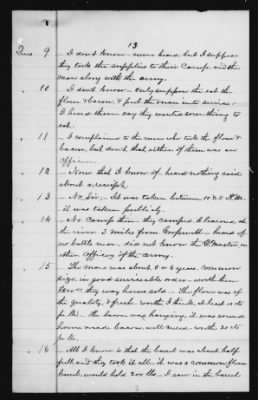 13
Ques 9 - I don't know - never heard, but I suppose
they took the supplies to their Camp, and the
man along with the army.
10 - I don't know - only suppose they eat the
flour & bacon & put the mare into service -
I heard them say they wanted something to
eat.
11 - I complained to the men who took the flour &
bacon, but don't that either of them was an
Officer.
12 - None that I know of, heard nothing said
about a receipt.
13 - No Sir, - It was taken between 10 & 11 A.M.
it was taken publicly.
14 - No Camp then - they camped I learned at
the river 3 miles from Cropwell - heard of
no battle near - did not know the Q. Master, or
other Officers of the army.
15 - The mare was about 5 or 6 years, common
size, in good serviceable order - worth then
$200 as they way horses sold. - The flour was of
fine quality, & fresh worth I think, at least 10 cts
pr lb. - the bacon was hanging, it was sound
home made bacon, well cured worth 20 cts
pr lb.
16 - All I know is that the barrel was about half
full, and they took it all. it was a common flour
barrel would hold 200 lbs. I saw in the barrel